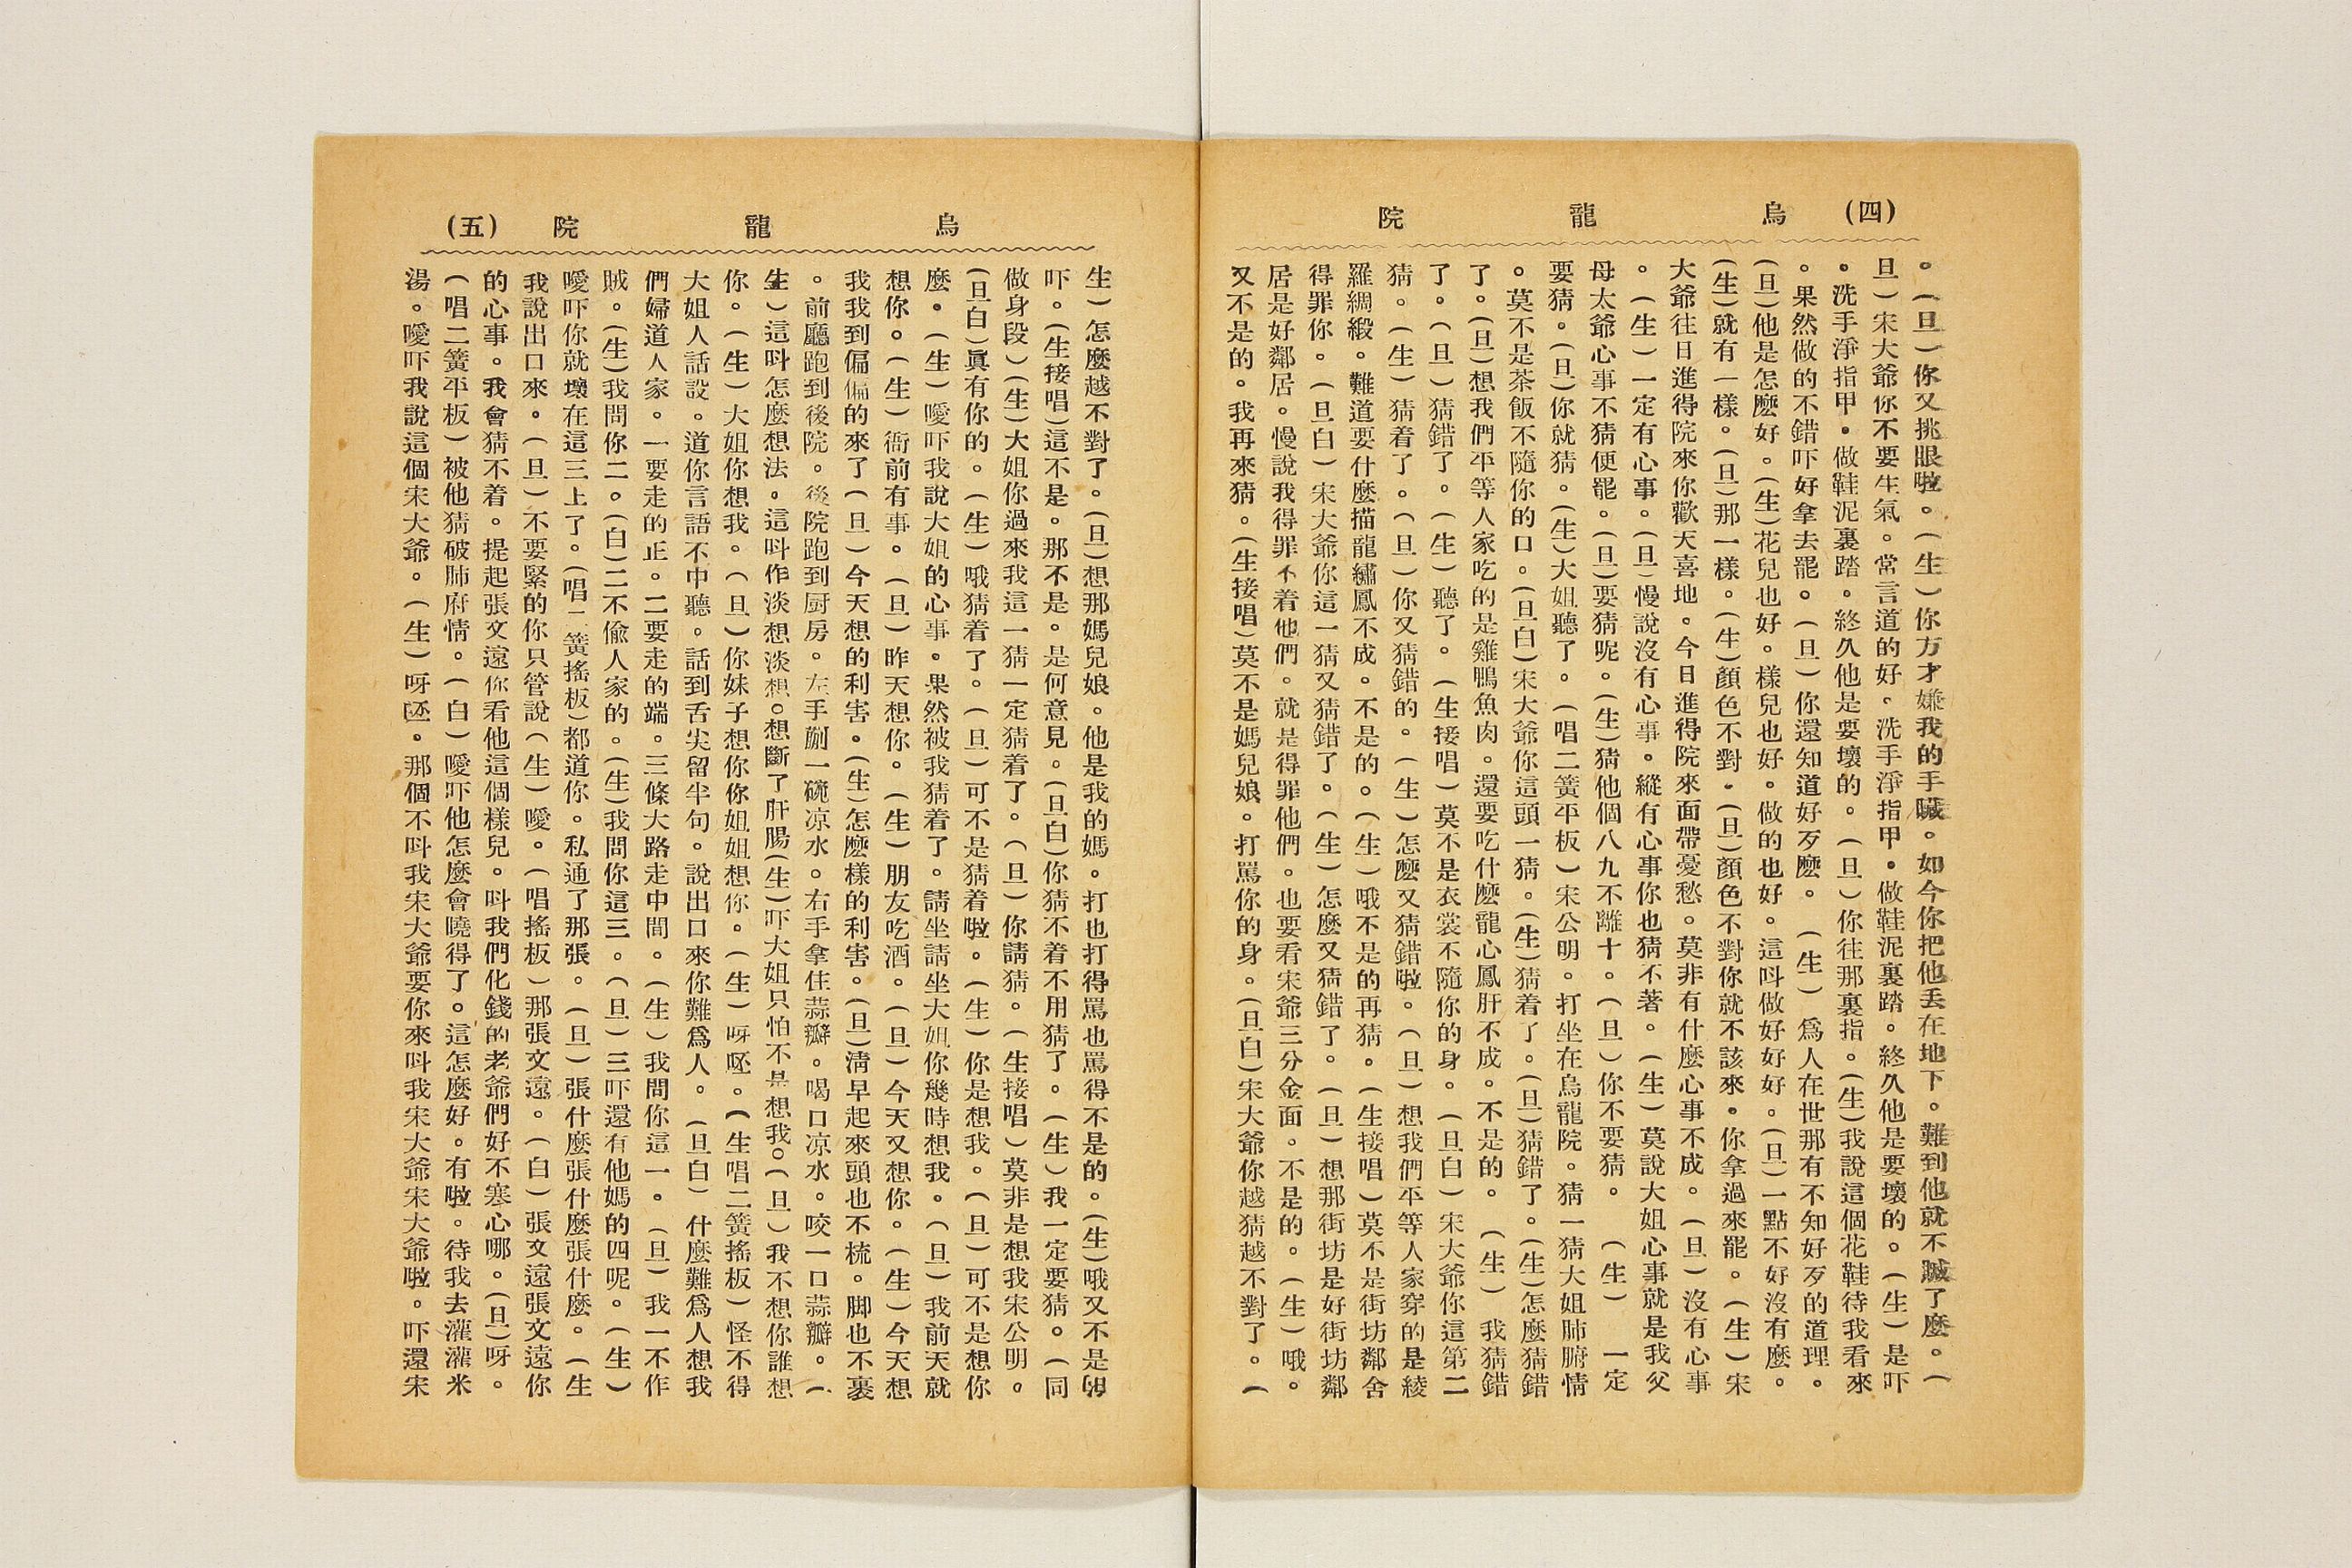 (四) 烏龍院
。(旦)你又挑眼啦。(生)你方才嫌我的手臟。如今你把他丢在地下。難到他就不贓了麽。(
旦)宋大爺你不要生氣。常言道的好。洗手淨指甲。做鞋泥裏踏。終久他是要壞的。(生)是吓
。洗手淨指甲。做鞋泥裏踏。終久他是要壞的。(旦)你往那裏指。(生)我說這個花鞋待我看來
。果然做的不錯吓好拿去罷。(旦)你還知道好歹麽。(生)爲人在世那有不知好歹的道理。
(旦)他是怎麽好。(生)花兒也好。樣兒也好。做的也好。這呌做好好好。(旦)一點不好沒有麽。
(生)就有一樣。(旦)那一樣。(生)顏色不對。(旦)顏色不對你就不該來。你拿過來罷。(生)宋
大爺往日進得院來你歡天喜地。今日進得院來面帶憂愁。莫非有什麼心事不成。(旦)沒有心事
。(生)一定有心事。(旦)慢說沒有心事。縱有心事你也猜不著。(生)莫說大姐心事就是我父
母太爺心事不猜便罷。(旦)要猜呢。(生)猜他個八九不離十。(旦)你不要猜。(生)一定
要猜。(旦)你就猜。(生)大姐聽了。(唱二簧平板)宋公明。打坐在烏龍院。猜一猜大姐肺腑情
。莫不是茶飯不隨你的口。(旦白)宋大爺你這頭一猜。(生)猜着了。(旦)猜錯了。(生)怎麼猜錯
了。(旦)想我們平等人家吃的是雞鴨魚肉。還要吃什麼龍心鳳肝不成。不是的。(生)我猜錯
了。(旦)猜錯了。(生)聽了。(生接唱)莫不是衣裳不隨你的身。(旦白)宋大爺你這第二
猜。(生)猜着了。(旦)你又猜錯的。(生)怎麼又猜錯啦。(旦)想我們平等人家穿的是綾
羅綢緞。難道要什麼描龍繡鳳不成。不是的。(生)哦不是的再猜。(生接唱)莫不是街坊鄰舍
得罪你。(旦白)宋大爺你這一猜又猜錯了。(生)怎麼又猜錯了。(旦)想那街坊是好街坊鄰
居是好鄰居。慢說我得罪不着他們。就是得罪他們。也要看宋爺三分金面。不是的。(生)哦。
又不是的。我再來猜。(生接唱)莫不是媽兒娘。打罵你的身。(旦白)宋大爺你越猜越不對了。(
烏龍院 (五)
生)怎麼越不對了。(旦)想那媽兒娘。他是我的媽。打也打得罵也罵得不是的。(生)哦又不是的
吓。(生接唱)這不是。那不是。是何意見。(旦白)你猜不着不用猜了。(生)我一定要猜。(同
做身段)(生)大姐你過來我這一猜一定猜着了。(旦)你請猜。(生接唱)莫非是想我宋公明。
(旦白)眞有你的。(生)哦猜着了。(旦)可不是猜着啦。(生)你是想我。(旦)可不是想你
麼。(生)噯吓我說大姐的心事。果然被我猜着了。請坐請坐大姐你幾時想我。(旦)我前天就
想你。(生)衙前有事。(旦)昨天想你。(生)朋友吃酒。(旦)今天又想你。(生)今天想
我我到偏偏的來了(旦)今天想的利害。(生)怎麼樣的利害。(旦)清早起來頭也不梳。脚也不裹
。前廳跑到後院。後院跑到厨房。左手㔉一碗凉水。右手拿住蒜瓣。喝口凉水。咬一口蒜瓣。(
生)這呌怎麼想法。這呌作淡想淡想。想斷了肝腸(生)吓大姐只怕不是想我。(旦)我不想你誰想
你。(生)大姐你想我。(旦)你妹子想你你姐姐想你。(生)呀呸。(生唱二簧搖板)怪不得
大姐人話設。道你言語不中聽。話到舌尖留半句。說出口來你難爲人。(旦白)什麼難爲人想我
們婦道人家。一要走的正。二要走的端。三條大路走中間。(生)我問你這一。(旦)我一不作
賊。(生)我問你二。(白)二不偸人家的。(生)我問你這三。(旦)三吓還有他媽的四呢。(生)
噯吓你就壞在這三上了。(唱二簧搖板)都道你。私通了那張。(旦)張什麼張什麼張什麼。(生
我說出口來。(旦)不要緊的你只管說(生)噯。(唱搖板)那張文遠。(白)張文遠張文遠你
的心事。我會猜不着。提起張文遠你看他這個樣兒。呌我們化錢的老爺們好不寒心哪。(旦)呀。
(唱二簧平板)被他猜破肺府情。(白)噯吓他怎麼會曉得了。這怎麼好。有啦。待我去灌灌米
湯。噯吓我說這個宋大爺。(生)呀呸。那個不呌我宋大爺要你來呌我宋大爺宋大爺啦。吓還宋